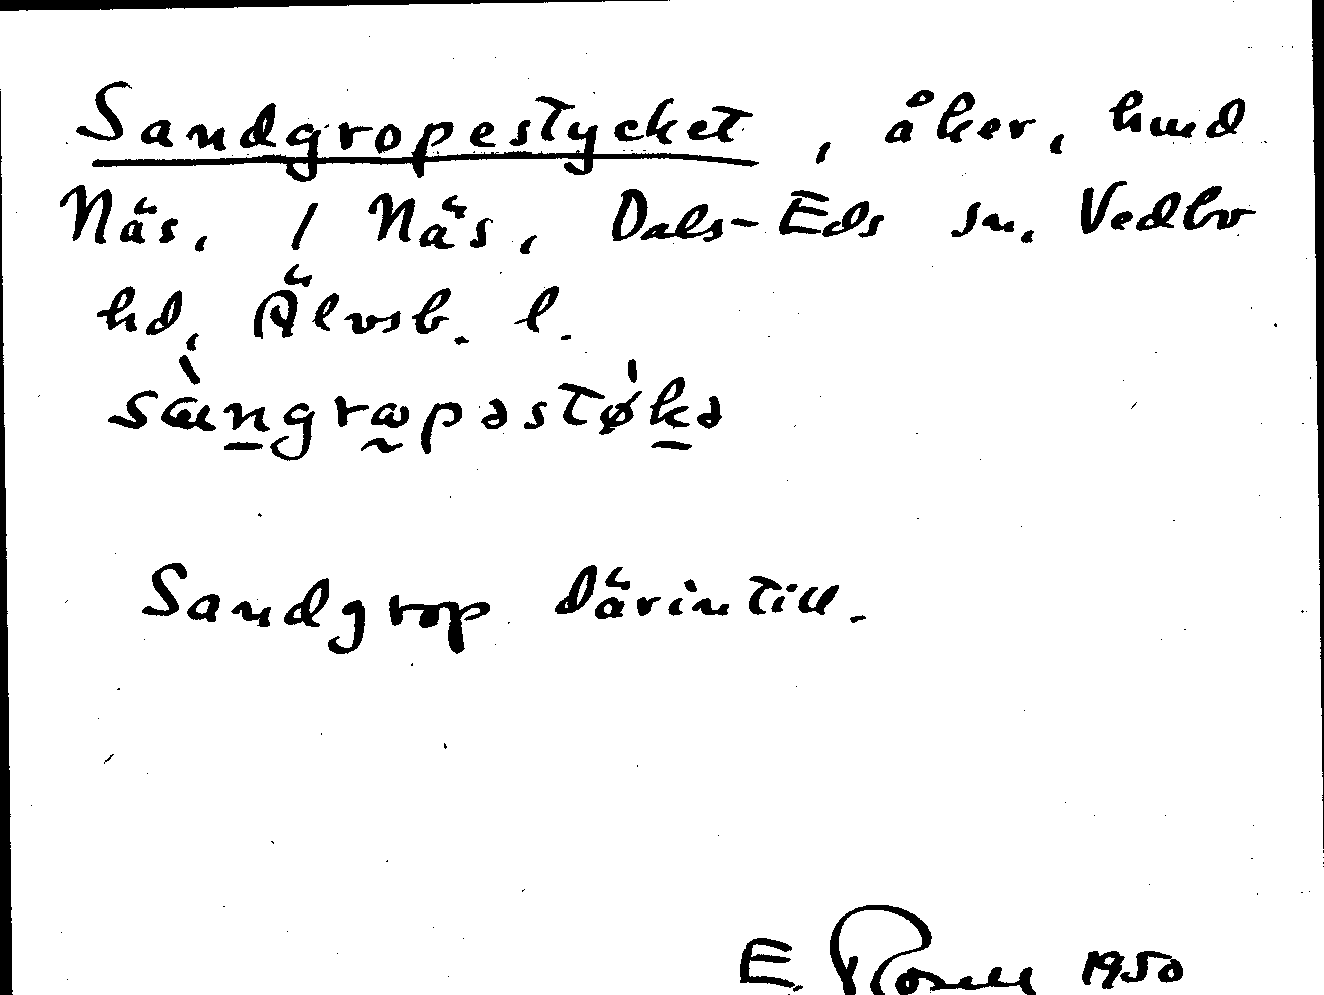 Sandgropestycket, åker, hmd
Näs, 1 Näs, Dals-Eds sn, Vedbo
hd, Älvsb. l.
sàngropəstø̍kə
Sandgrop därintill.
E. Rosell 1950